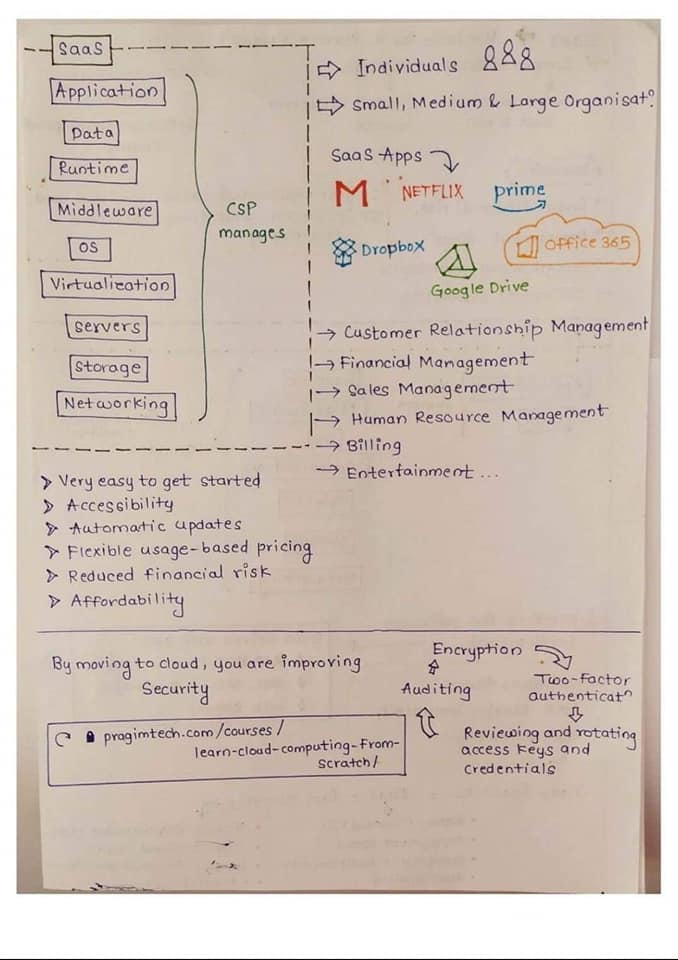 SaaS
Application
Data
Runtime
Middleware
OS
Virtualization
Servers
Storage
Networking
CSP
manages
Individuals
Small, Medium & Large Organisatⁿ
SaaS Apps
M
NETFLIX
prime
Dropbox
Google Drive
Office 365
Customer Relationship Management
Financial Management
Sales Management
Human Resource Management
Billing
Entertainment ...
Very easy to get started
Accessibility
Automatic updates
Flexible usage-based pricing
Reduced financial risk
Affordability
By moving to cloud, you are improving
Security
pragimtech.com/courses/
learn-cloud-computing-from-
scratch/
Encryption
Two-factor
authenticatⁿ
Reviewing and rotating
access keys and
credentials
Auditing